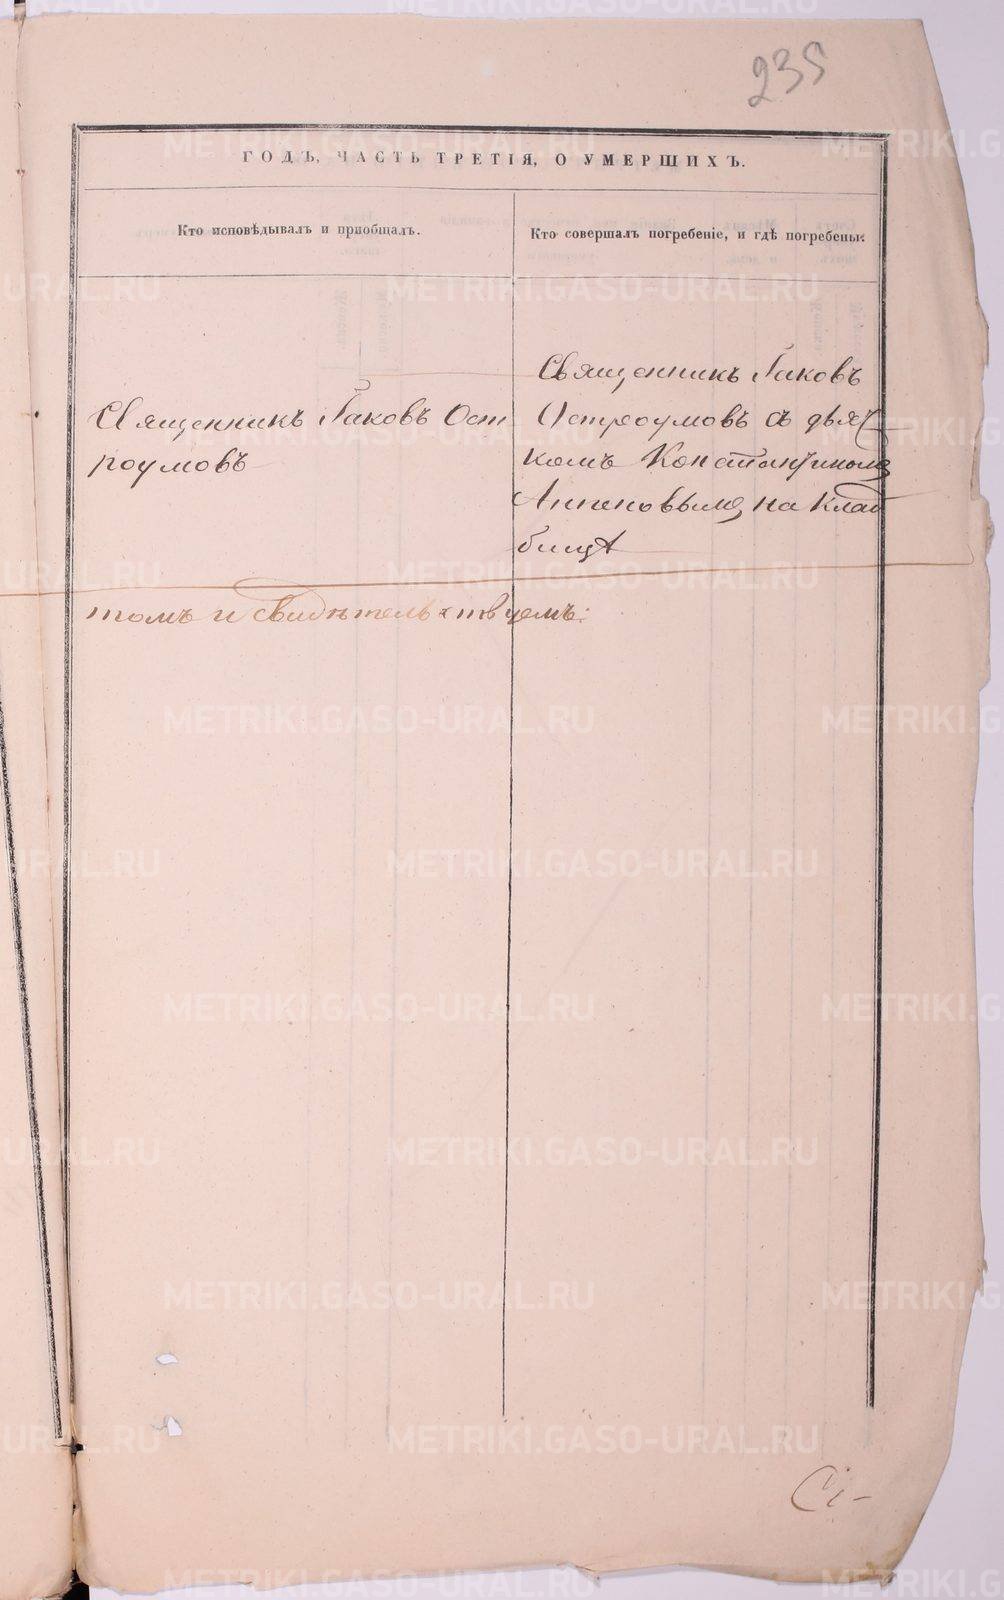 235
ГОДЪ, ЧАСТЬ ТРЕТІЯ, О УМЕРШИХЪ.
Кто исповѣдывалъ и пріобщалъ.
Кто совершалъ погребеніе, и гдѣ погребены.
Священникъ Іаковъ Ост
роумовъ
Священникъ Іаковъ
Остроумовъ съ дьяч
комъ Константиномъ
на клад
бищѣ
томъ и свидѣтельствуемъ:
METRIKI.GASO-URAL.RU